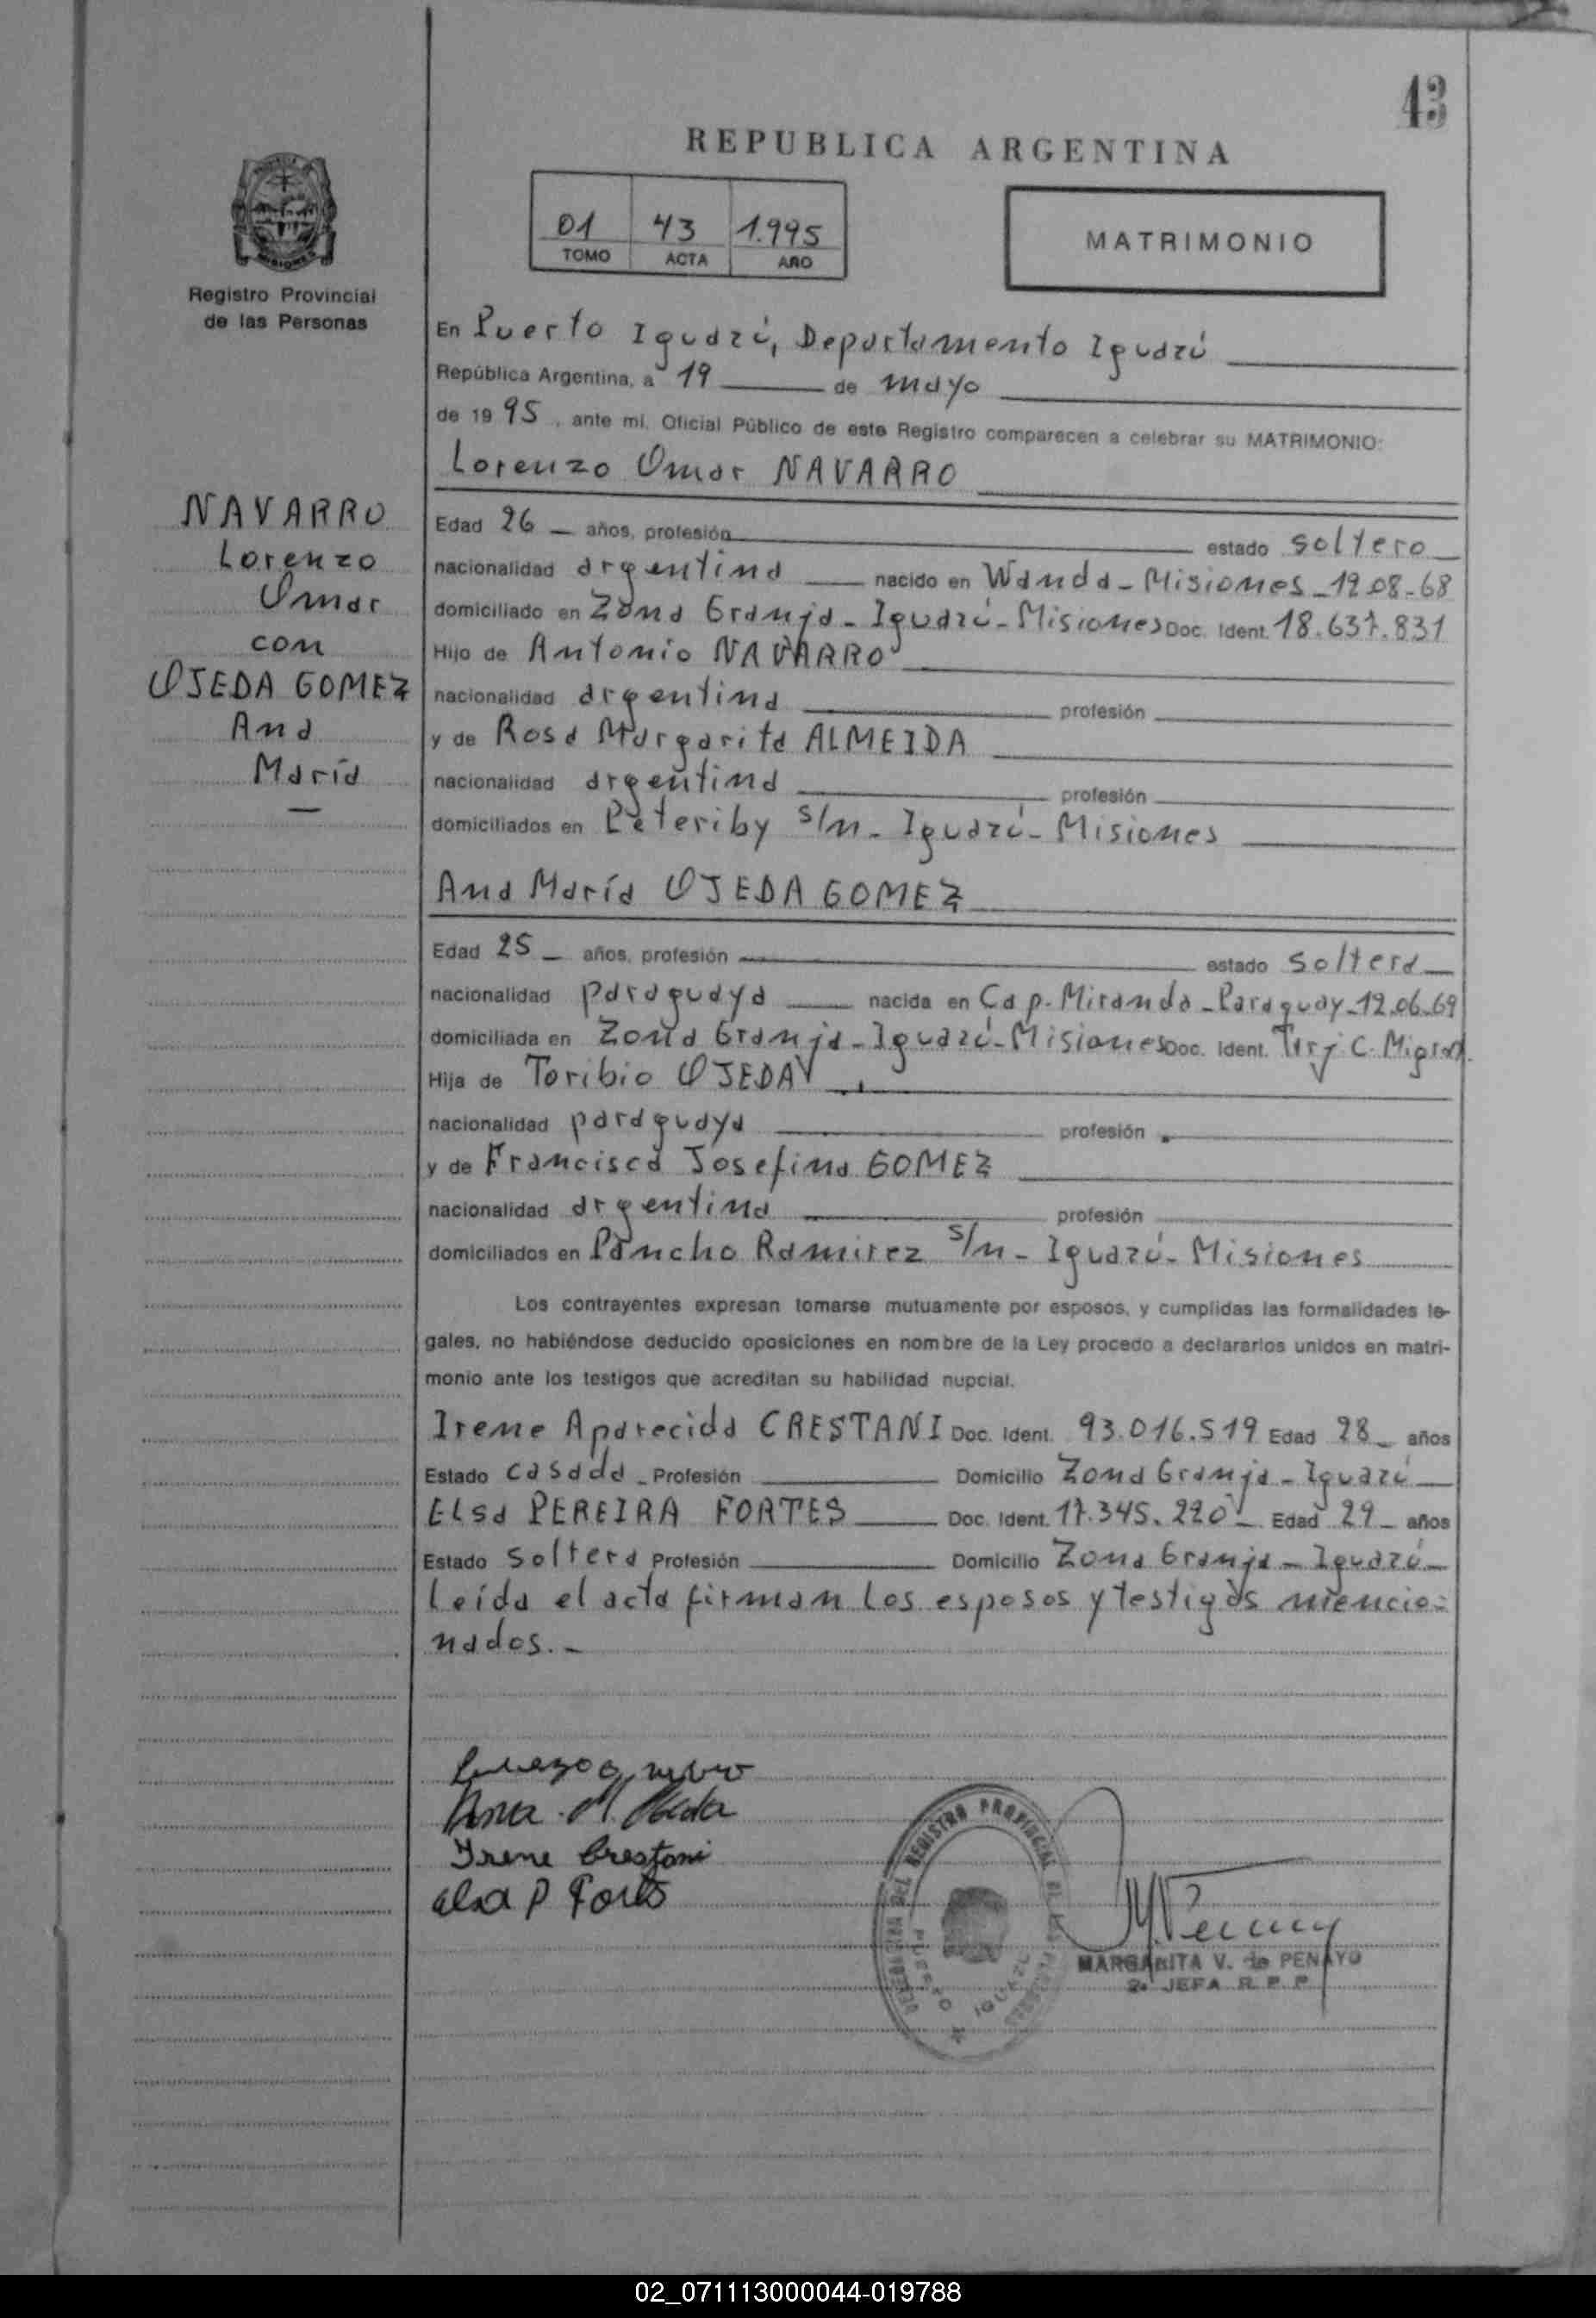 43
REPUBLICA ARGENTINA
01 43 1.995
TOMO ACTA AÑO
MATRIMONIO
MISIONES
Registro Provincial
de las Personas
En Puerto Iguazú, Departamento Iguazú
República Argentina, a 19 de mayo
de 1995, ante mi, Oficial Público de este Registro comparecen a celebrar su MATRIMONIO:
Lorenzo Omar NAVARRO
NAVARRO
Lorenzo
Omar
con
OJEDA GOMEZ
Ana
María
Edad 26 años, profesión estado soltero
nacionalidad argentina nacido en Wanda - Misiones - 12.08-68
domiciliado en Zona Granja - Iguazú - Misiones Doc. Ident. 18.637.831
Hijo de Antonio NAVARRO
nacionalidad argentina profesión
y de Rosa Margarita ALMEIDA
nacionalidad argentina profesión
domiciliados en Peteriby s/n - Iguazú - Misiones
Ana María OJEDA GOMEZ
Edad 25 años, profesión estado soltera
nacionalidad paraguaya nacida en Cap. Miranda - Paraguay - 12.06-69
domiciliada en Zona Granja - Iguazú - Misiones Doc. Ident. Tarj C. Migrat.
Hija de Toribio OJEDA
nacionalidad paraguaya profesión
y de Francisca Josefina GOMEZ
nacionalidad argentina profesión
domiciliados en Pancho Ramirez s/n - Iguazú - Misiones
Los contrayentes expresan tomarse mutuamente por esposos, y cumplidas las formalidades le-
gales, no habiéndose deducido oposiciones en nombre de la Ley procedo a declararlos unidos en matri-
monio ante los testigos que acreditan su habilidad nupcial.
Irene Aparecida CRESTANI Doc. Ident. 93.016.519 Edad 28 años
Estado casada Profesión Domicilio Zona Granja - Iguazú
Elsa PEREIRA FORTES Doc. Ident. 17.345.220 Edad 29 años
Estado soltera Profesión Domicilio Zona Granja - Iguazú
Leída el acta firman los esposos y testigos mencio=
nados.-
Ana M. Ojeda
Irene Crestani
elsa P Fortes
DEL REGISTRO PROVINCIAL DE LAS PERSONAS
PUERTO IGUAZU
MARGARITA V. de PENAYO
2ª JEFA R. P. P.
02_071113000044-019788